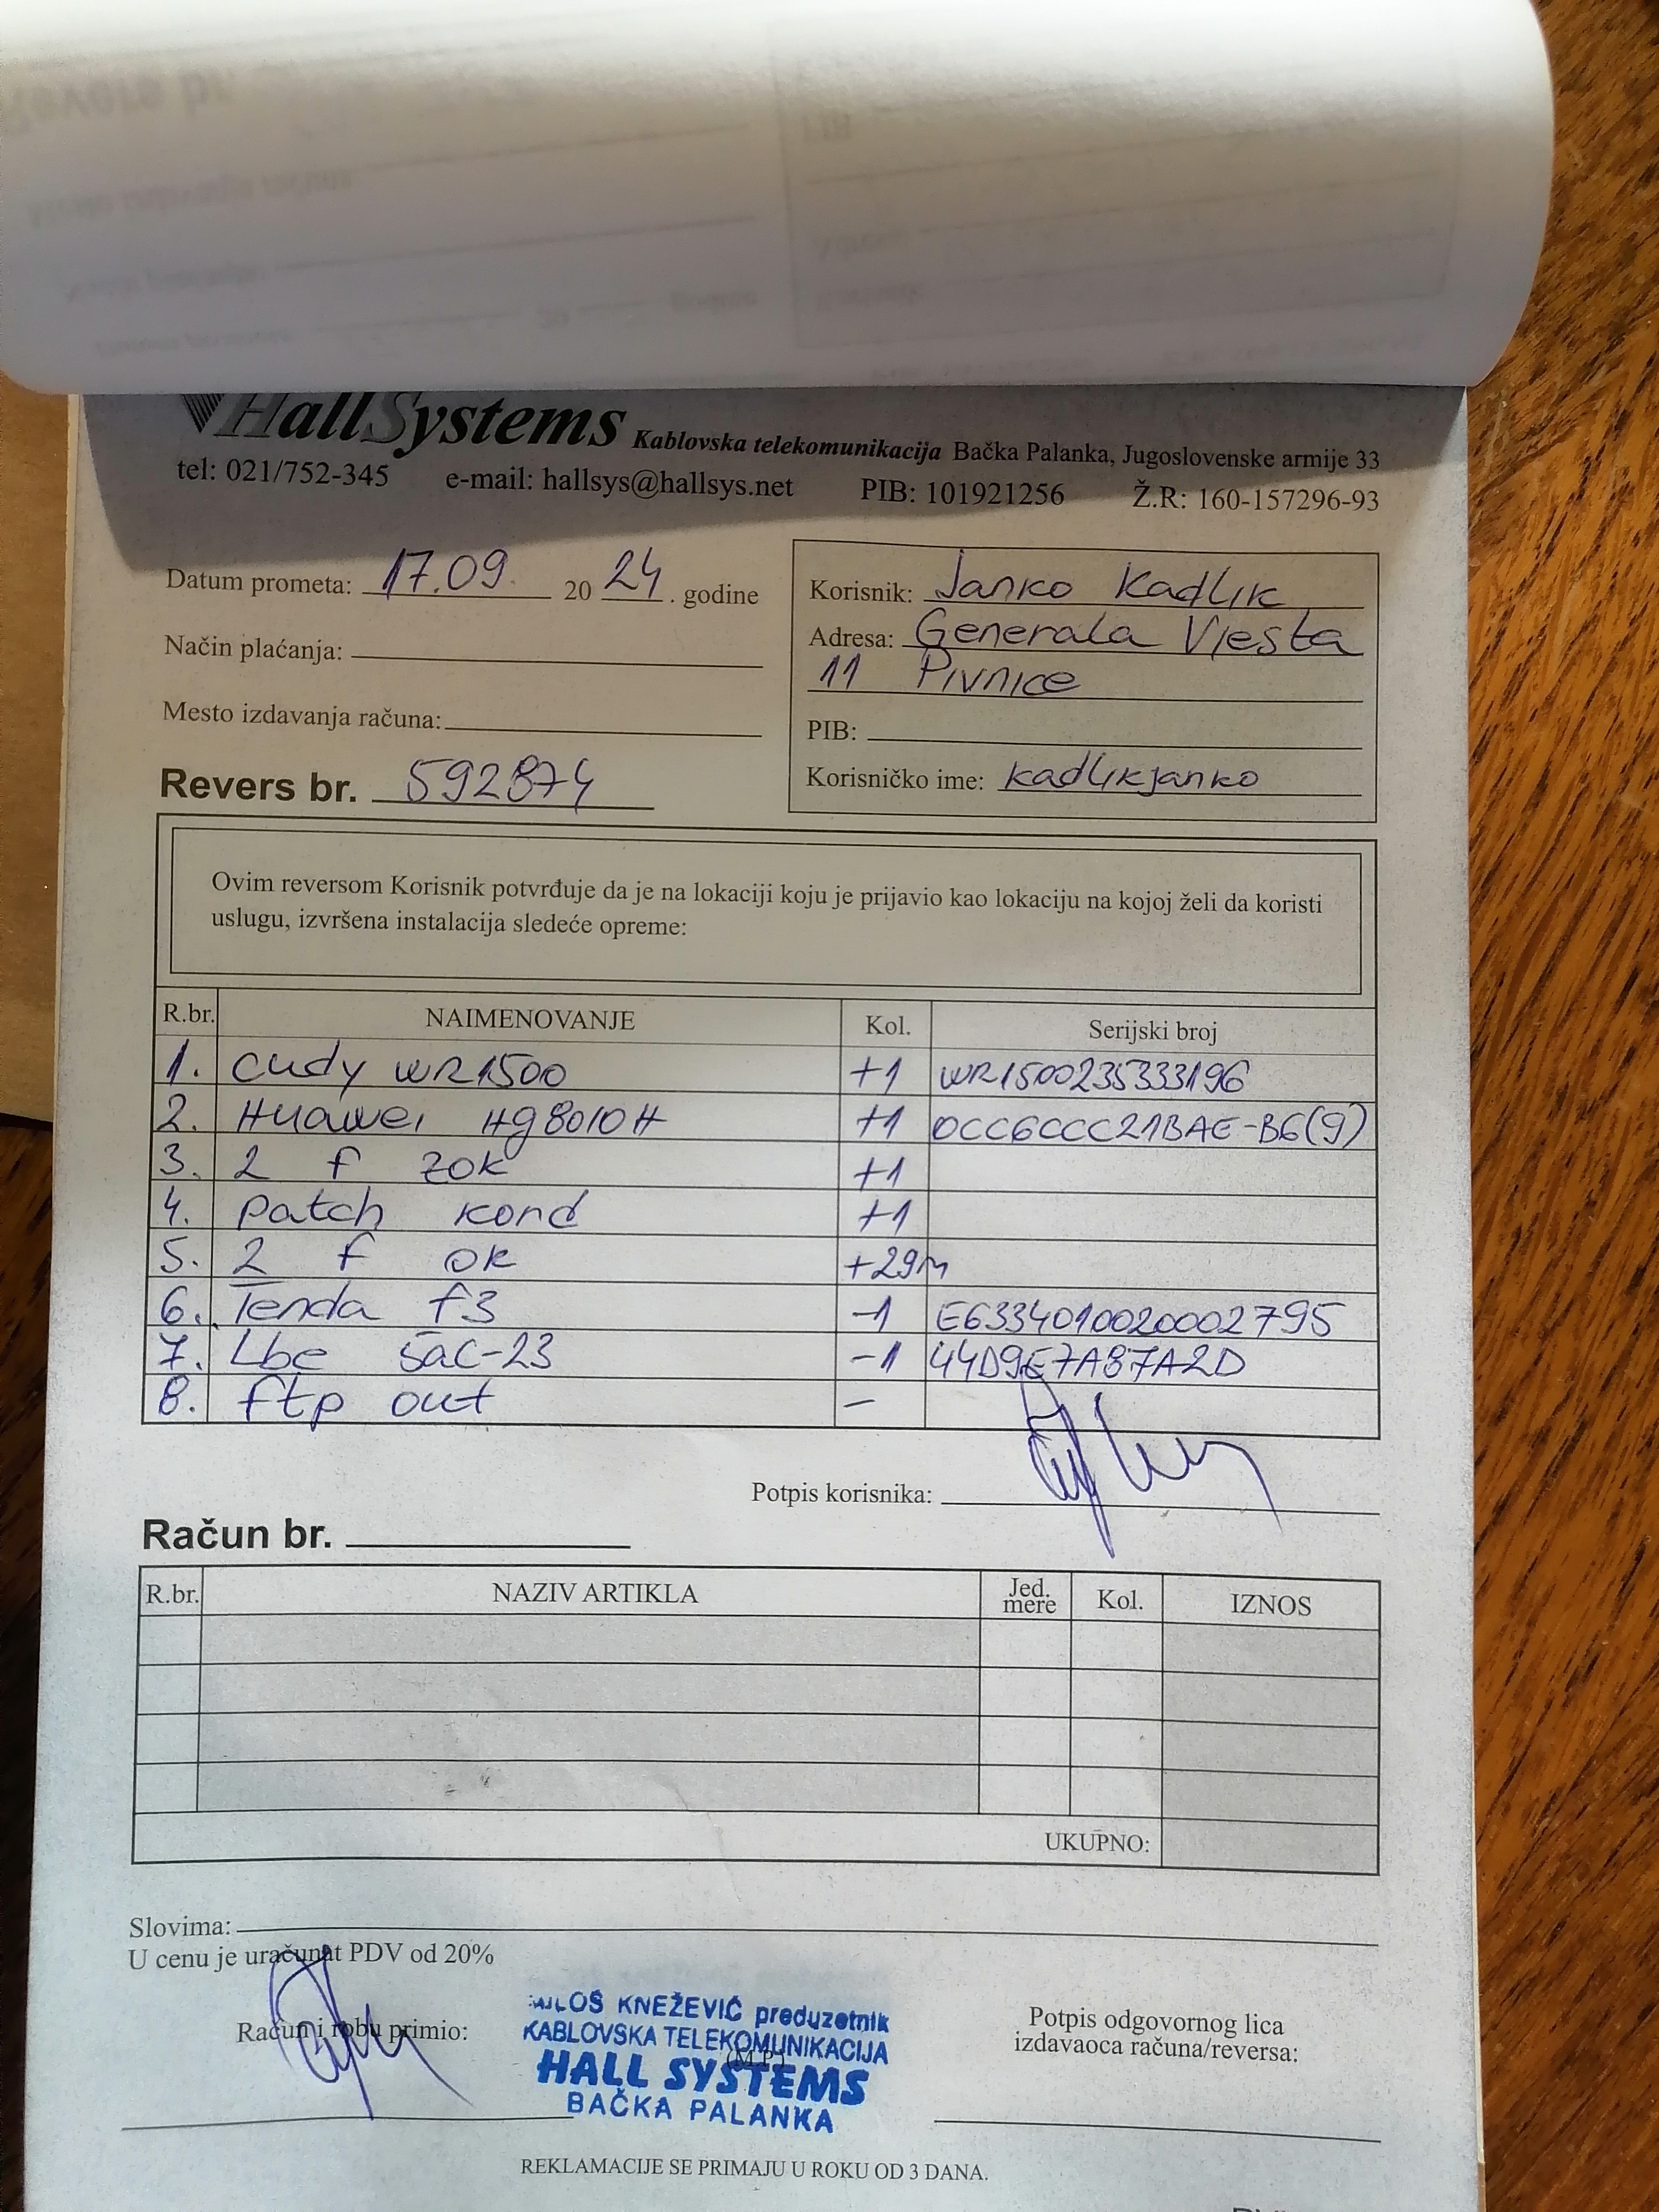 HallSystems Kablovska telekomunikacija Bačka Palanka, Jugoslovenske armije 33
tel: 021/752-345 e-mail: hallsys@hallsys.net PIB: 101921256 Ž.R: 160-157296-93
Datum prometa: 17.09. 2024. godine
Način plaćanja:
Mesto izdavanja računa:
Revers br. 592874
Korisnik: Janko Kadlik
Adresa: Generala Viesta
11 Pivnice
PIB:
Korisničko ime: kadlikjanko
Ovim reversom Korisnik potvrđuje da je na lokaciji koju je prijavio kao lokaciju na kojoj želi da koristi
uslugu, izvršena instalacija sledeće opreme:
R.br. NAIMENOVANJE Kol. Serijski broj
1. Cudy WR1500 +1 WR1500235333196
2. Huawei Hg8010H +1 0CC6CCC21BAE-B6(9)
3. 2 f zok +1
4. Patch kord +1
5. 2 f ok +29m
6. Tenda f3 -1 E6334010020002795
7. Lbe 5ac-23 -1 44D9E7A87A2D
8. ftp out -
Potpis korisnika:
Račun br.
R.br. NAZIV ARTIKLA Jed. mere Kol. IZNOS
UKUPNO:
Slovima:
U cenu je uračunat PDV od 20%
Račun i robu primio:
MILOŠ KNEŽEVIĆ preduzetnik
KABLOVSKA TELEKOMUNIKACIJA
(M.P.)
HALL SYSTEMS
BAČKA PALANKA
Potpis odgovornog lica
izdavaoca računa/reversa:
REKLAMACIJE SE PRIMAJU U ROKU OD 3 DANA.